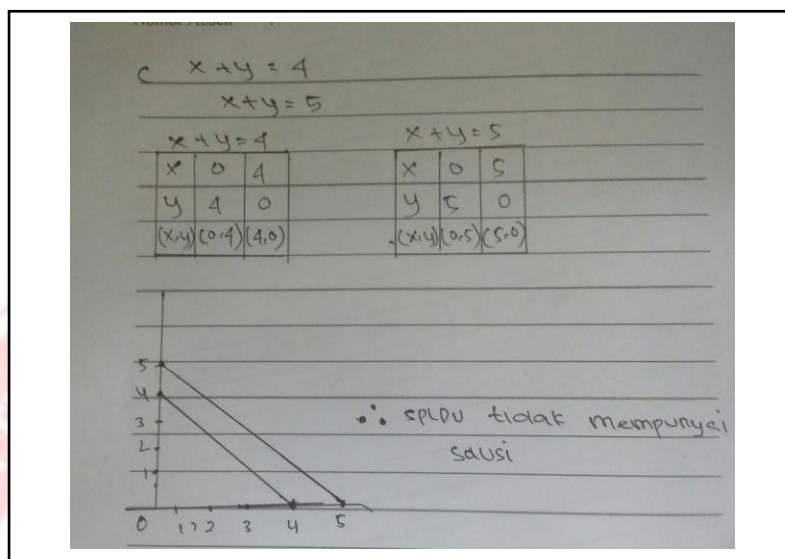 C x + y = 4
x + y = 5
x + y = 4
x 0 4
y 4 0
(x,y) (0,4) (4,0)
x + y = 5
x 0 5
y 5 0
(x,y) (0,5) (5,0)
5
4
3
2
1
0 1 2 3 4 5
∴ SPLDV tidak mempunyai
solusi